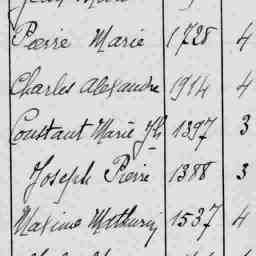 Pierre Marie 1728 4
Charles Alexandre 1914 4
Constant Marie Jh 1397 3
Joseph Pierre 1388 3
Maxime Mathurin 1537 4